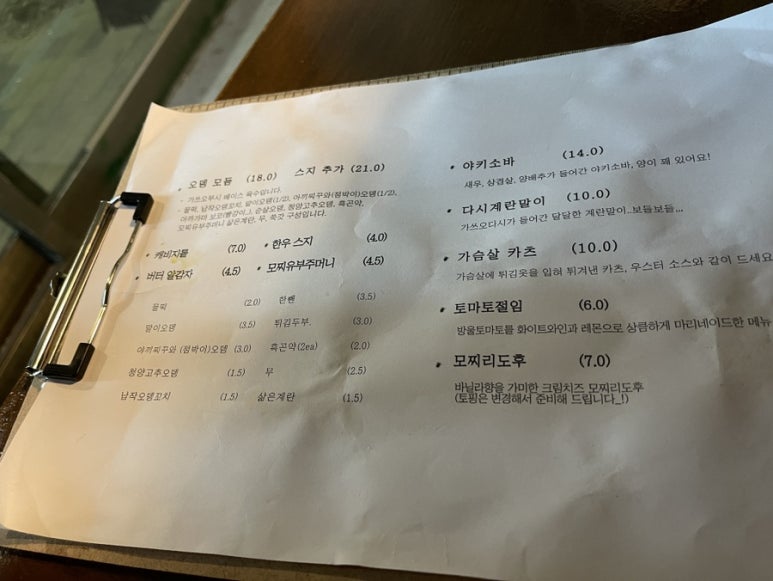 오뎅 모듬 (18.0) 스지 추가 (21.0)
- 가쓰오부시 베이스 육수입니다.
- 꼴찌, 납작오뎅꼬치, 말이오뎅(1/2), 야끼찌꾸와(정박이)오뎅(1/2),
순살오뎅, 청양고추오뎅, 흑곤약,
모찌유부주머니 삶은계란, 무, 쑥갓 구성입니다.
캐비지롤 (7.0) 한우 스지 (4.0)
버터 알감자 (4.5) 모찌유부주머니 (4.5)
(2.0) 한펜 (3.5)
말이오뎅 (3.5) 튀김두부 (3.0)
야끼찌꾸와 (정박이)오뎅 (3.0) 흑곤약(2ea) (2.0)
청양고추오뎅 (1.5) 무 (2.5)
납작오뎅꼬치 (1.5) 삶은계란 (1.5)
야키소바 (14.0)
새우, 삼겹살, 양배추가 들어간 야키소바, 양이 꽤 있어요!
다시계란말이 (10.0)
가쓰오다시가 들어간 달달한 계란말이..보들보들...
가슴살 카츠 (10.0)
가슴살에 튀김옷을 입혀 튀겨낸 카츠, 우스터 소스와 같이 드세요
토마토절임 (6.0)
방울토마토를 화이트와인과 레몬으로 상큼하게 마리네이드한 메뉴
모찌리도후 (7.0)
바닐라향을 가미한 크림치즈 모찌리도후
(토핑은 변경해서 준비해 드립니다_!)